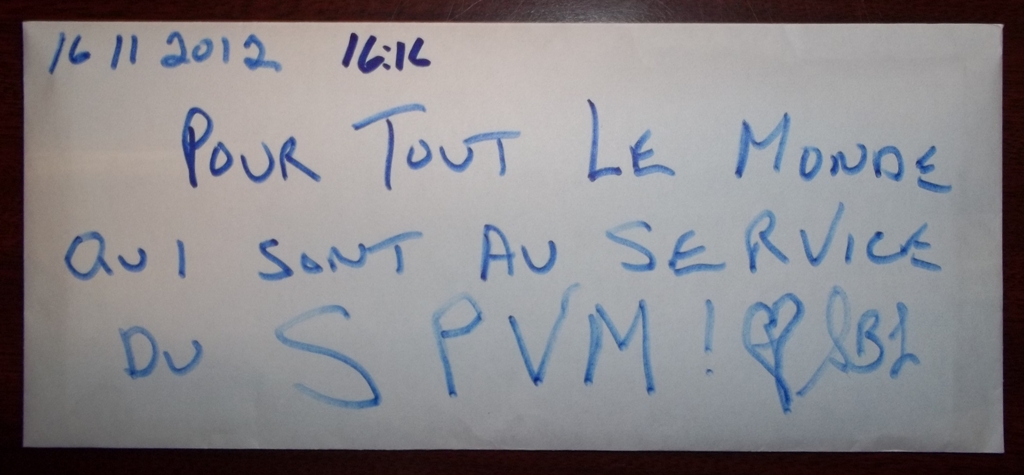 16 11 2012 16:16
POUR TOUT LE MONDE
QUI SONT AU SERVICE
DU SPVM!